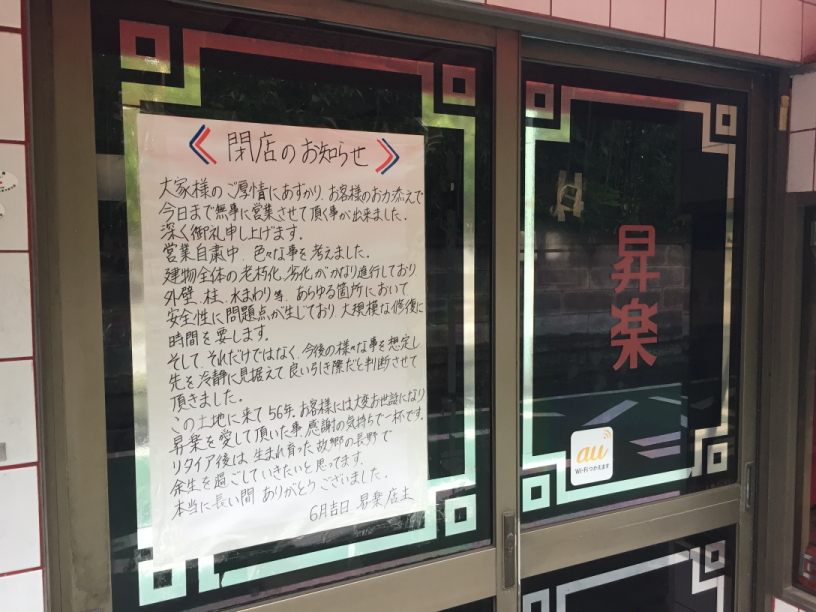 閉店のお知らせ
大家様のご厚情にあずかり、お客様のお力添えで
今日まで無事に営業させて頂く事が出来ました。
深く御礼申し上げます。
営業自粛中、色々な事を考えました。
建物全体の老朽化、劣化がかなり進行しており
外壁、柱、水まわり等、あらゆる箇所において
安全性に問題点が生じており、大規模な修復に
時間を要します。
そして それだけではなく、今後の様々な事を想定し
先を冷静に見据えて良い引き際だと判断させて
頂きました。
この土地に来て56年、お客様には大変お世話になり
昇楽を愛して頂いた事、感謝の気持ちで一杯です。
リタイア後は、生まれ育った故郷の長野で
余生を過ごしていきたいと思ってます。
本当に長い間 ありがとうございました。
6月吉日 昇楽店主
昇楽
au
Wi-Fiつかえます